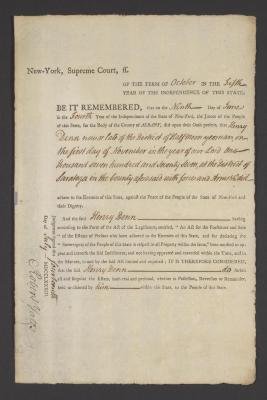 New-York, Supreme Court, ſſ.
OF THE TERM OF October IN THE Fifth
YEAR OF THE INDEPENDENCE OF THIS STATE;
BE IT REMEMBERED, that on the Ninth Day of June
in the Fourth Year of the Independence of the State of New-York, the Jurors of the People
of this State, for the Body of the County of ALBANY, did upon their Oath present, that Henry
Denn now or late of the District of Halfmoon yeoman, on
the first day of November in the year of our Lord One
thousand seven hundred and Seventy Seven, at the District of
Saratoga in the County aforesaid with force and Arms &c did
adhere to the Enemies of this State, against the Peace of the People of the State of New-York and
their Dignity.
And the said Henry Denn having
according to the Form of the Act of the Legislature, entitled, "An Act for the Forfeiture and Sale
" of the Estates of Persons who have adhered to the Enemies of this State, and for declaring the
" Sovereignty of the People of this State in respect to all Property within the same," been notified to ap-
pear and traverse the said Indictment, and not having appeared and traversed within the Time, and in
the Manner, in and by the said Act limited and required; IT IS THEREFORE CONSIDERED,
that the said Henry Denn do forfeit
all and singular the Estate, both real and personal, whether in Possession, Reversion or Remainder,
held or claimed by him within this State, to the People of this State.
Judgment signed this fourteenth
Day of July MDCCLXXXIII.
Robert Yates